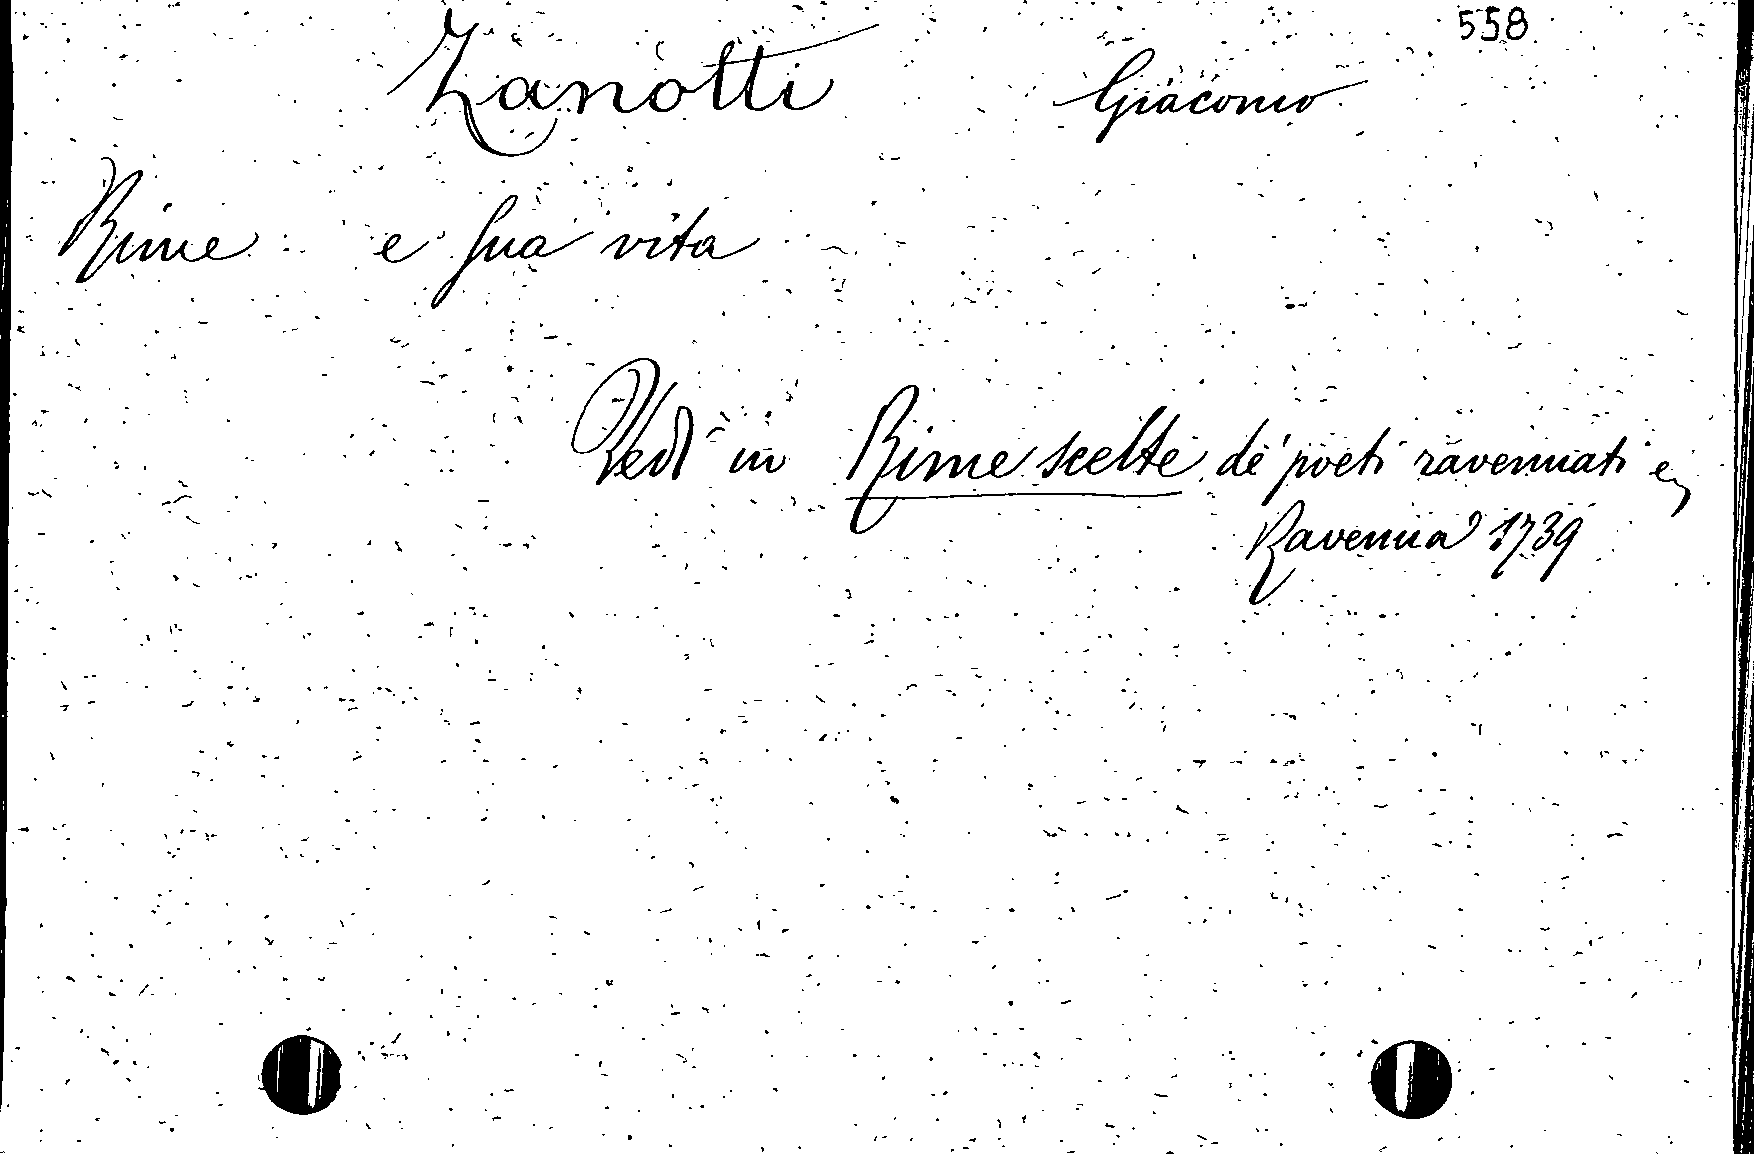 558
Zanotti Giacomo
Rime e sua vita
Vedi in Rime scelte de' poeti ravennati e
Ravenna 1739